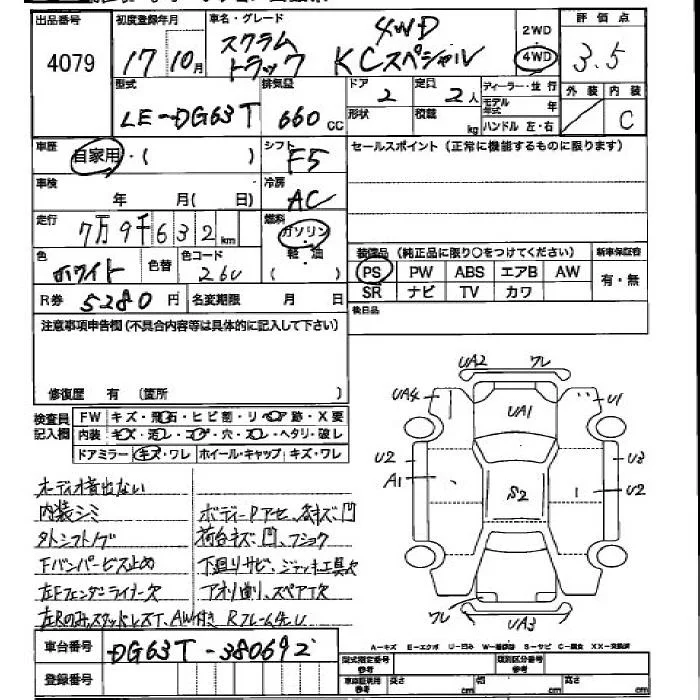 出品番号 初度登録年月 車名・グレード 評価点
4079 17 10月 スクラムトラック 4WD KCスペシャル 2WD 4WD 3.5
型式 排気量 ドア 定員 ディーラー・並行 外装 内装
LE-DG63T 660cc 2 2人 モデル年式 年 C
形状 積載 kg ハンドル 左・右
車歴 自家用・( ) シフト F5 セールスポイント(正常に機能するものに限ります)
車検 年 月(日) 冷房 AC
走行 7万9千632km 燃料 ガソリン・軽油
色 ホワイト 色替 色コード 26U 装備品(純正品に限り○をつけてください) 新車保証書
PS PW ABS エアB AW 有・無
R券 5280円 名変期限 月 日 SR ナビ TV カワ
注意事項申告欄(不具合内容等は具体的に記入して下さい) 後日品
修復歴 有(箇所 )
検査員記入欄 FW キズ・飛石・ヒビ割・リペア跡・X要
内装 キズ・汚レ・コゲ・穴・スレ・ヘタリ・破レ
ドアミラー キズ・ワレ ホイール・キャップ キズ・ワレ
UA2 ワレ
UA4 UA1 U1
U2 U3
A1 S2 U2
ワレ UA3
オーディオ音出ない
内装シミ ボディーPアセ、各キズ凹
タトシフトノブ 荷台キズ、凹、フショク
Fバンパービス止め 下廻りサビ、ジャッキ工具欠
左Fフェンダーライナー欠 アオリ削り、スペアT欠
左Rのみスタッドレス T、AW付き Rフレーム先U
A-キズ E-エクボ U-凹み W-補修跡 S-サビ C-腐食 XX-交換済
車台番号 DG63T-380692
登録番号 型式指定番号 参考 類別区分番号 参考
車庫証明用 参考 長さ cm 幅 cm 高さ cm